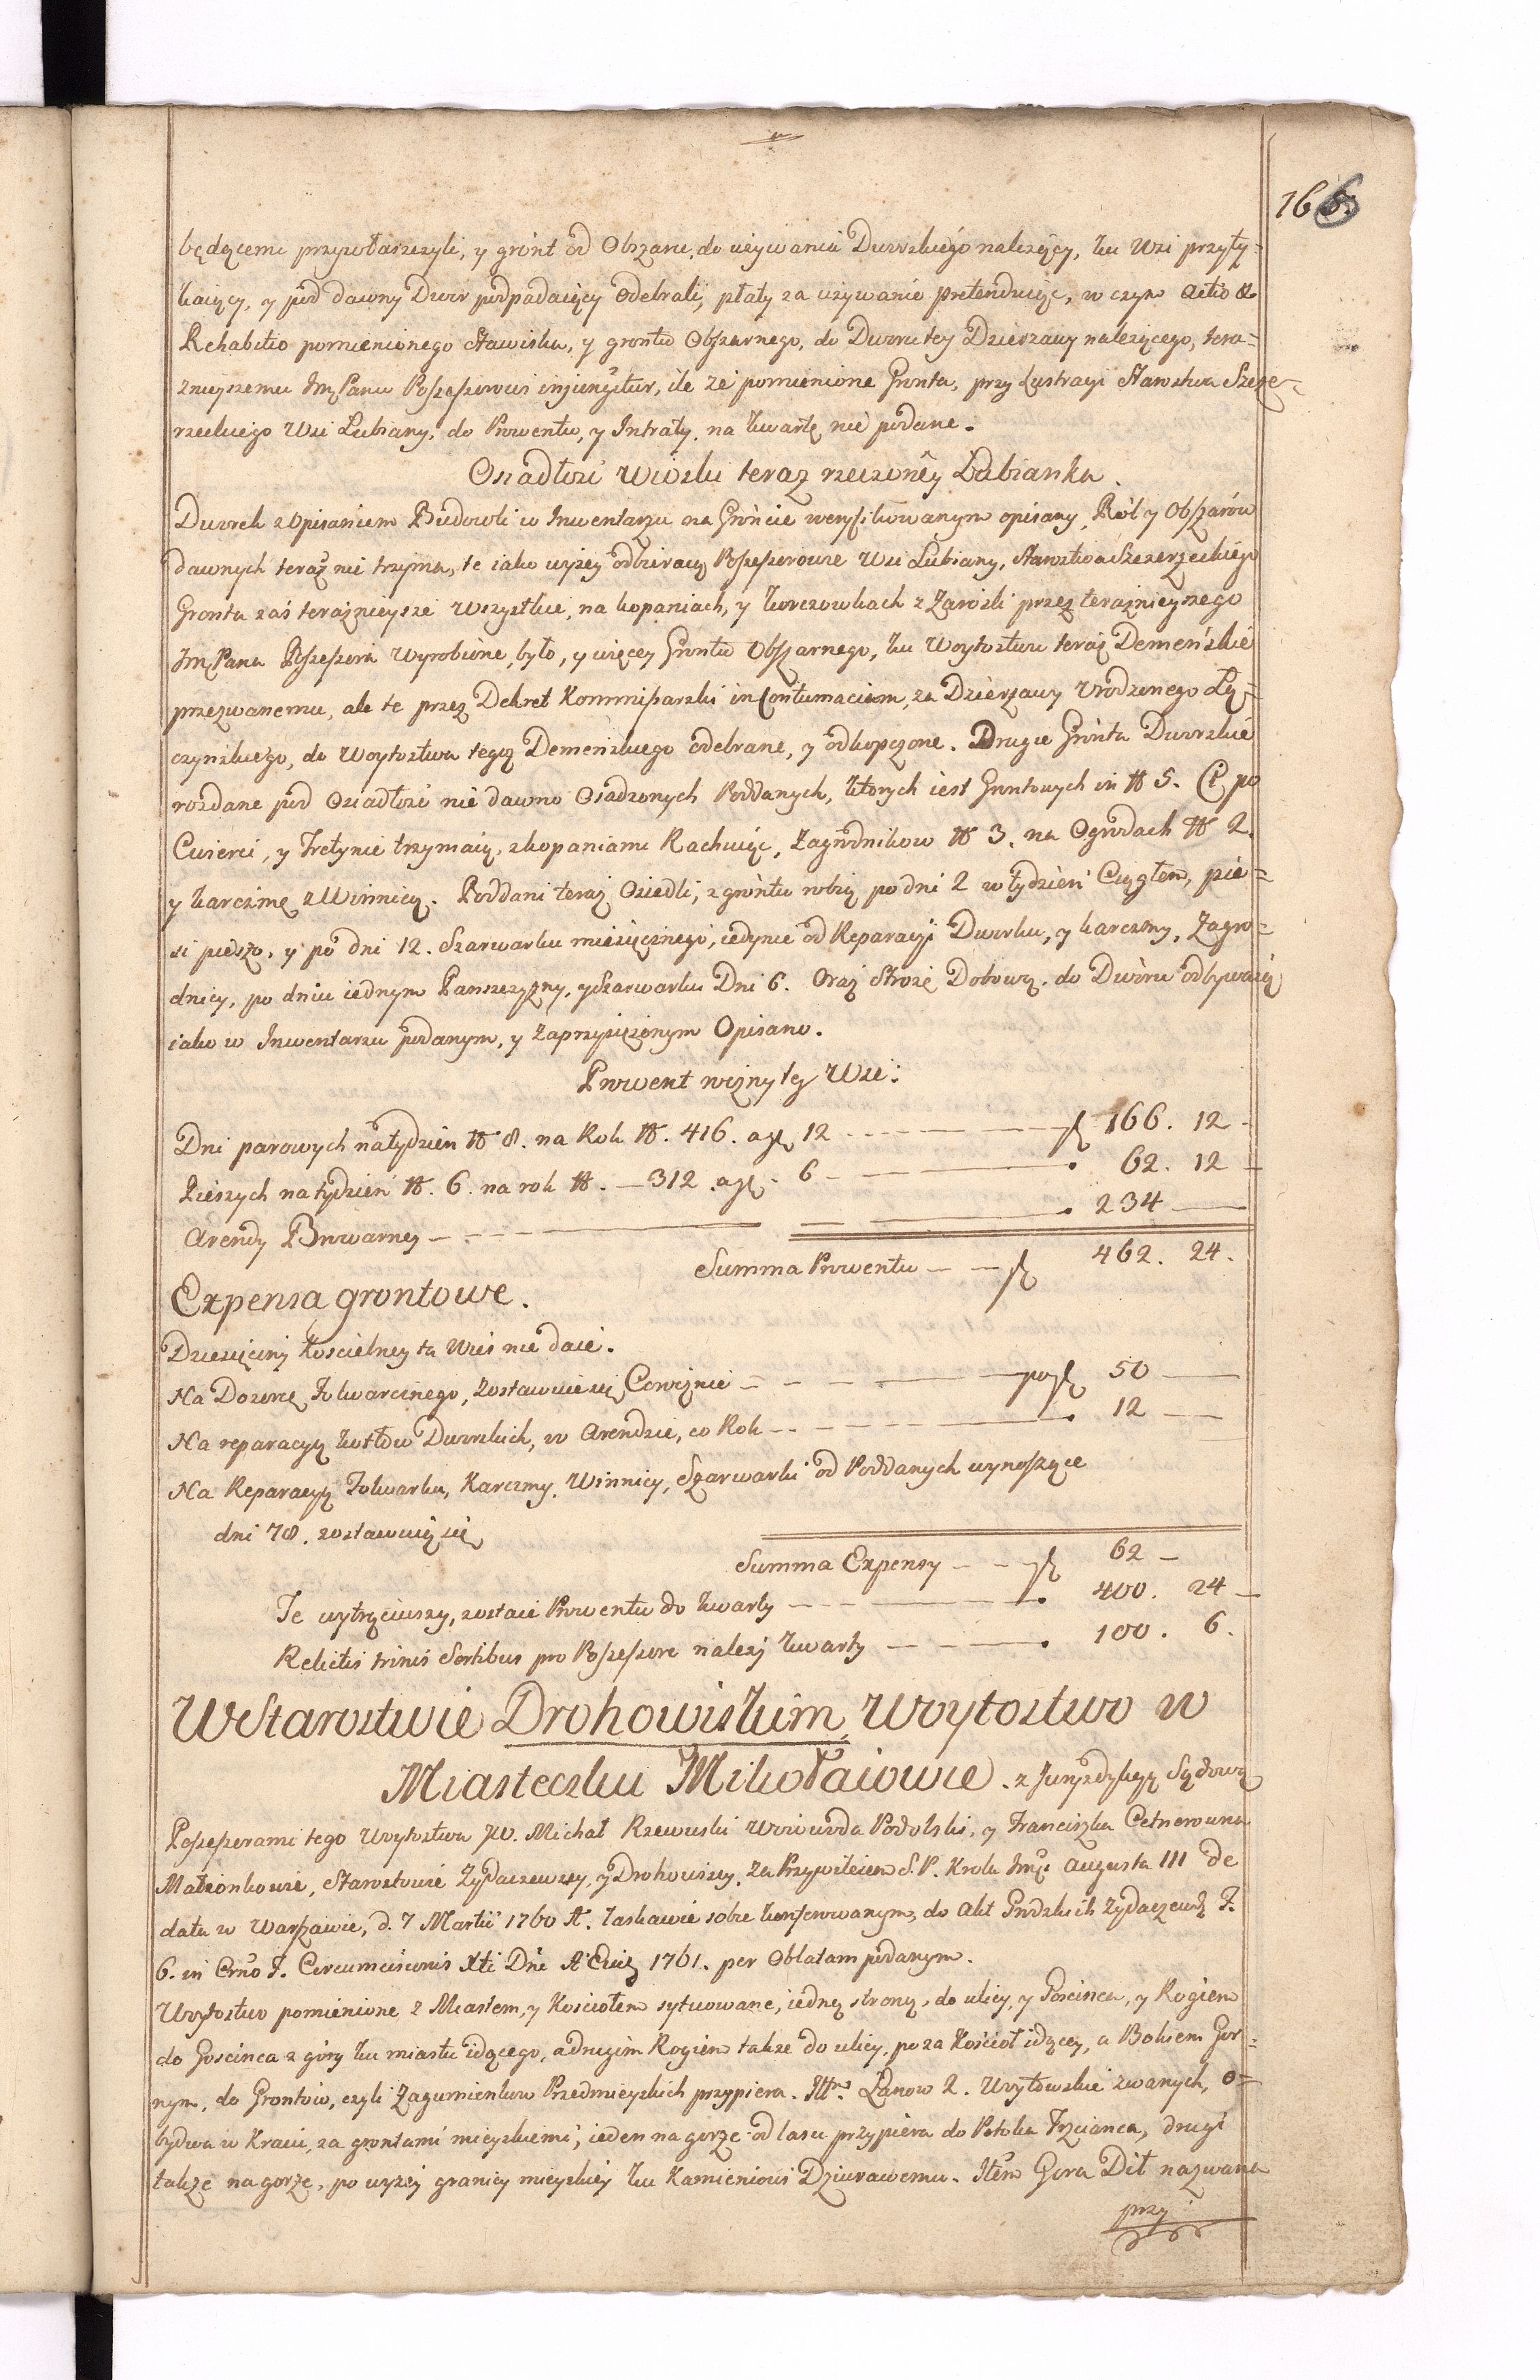 166.
będącemi przywłaszczyli, y grónt od Obszaru, do używania Dworskiégo nalezący, ku Wsi przyty=
kaiący, y pod dawny Dwor podpadaiący odebrali, płaty za używanie pretenduiąc, w czym Actio &
Rehabitio pomienionego Stawiska, y grontu Obszarnego, do Dworu tey Dzierzawy nalezącego, tera=
znieyszemu Jmć Panu Possessorowi injungitur, ile ze pomienione Gronta, przy Lustracyi Starostwa Szcze=
rzeckiego Wsi Lubiany, do Prowentu, y Intraty, na kwartę nie podane.
Osiadłość Wiosku teraz rzeczonéy Lubianka.
Dworek z Opisaniem Budowli w Inwentarzu na Gróncie weryfikowanym opisany, Ról y Obszarów
dawnych teraz nie trzyma, te iako wyżey odbieraią Possessorowie Wsi Lubiany, Starostwa Szczerzeckiégo
Gronta zaś teraznieysze Wszystkie, na kopaniach, y korczowkach z Zarośli przez teraznieyszego
Jmć Pana Possessora wyrobione, było, y więcey Grontu Obszarnego, ku Woytostwu teraz Demeńskie
przezwanemu, ale te przez Dekret Kommissarski in Contumaciam, za Dzierzawy Urodzonego Łą=
czynskiego, do Woytostwa tegoż Demeńskiego odebrane, y odkopczone. Drugie Grónta Dworskié
rozdane pod Osiadłość nie dawno Osadzonych Poddanych, ktorych iest Grontowych in № 5. Ci po
Cwierci, y Tretynie trzymaią, z kopaniami Rachuiąc, Zagrodnikow № 3. na Ogrodach № 2.
y karczmę z Winnicą. Poddani teraz Osiedli, z gróntu robią po dni 2 w tydzień Cugłem, pie=
si pieszo, y po dni 12. Szarwarku miesięcznego, iedynie od Reparacyi Dworku, y karczmy, Zagro=
dnicy, po dniu iednym Panszczyzny, y Szarwarku Dni 6. Oraz Stroże Dobową, do Dworu odbywaią
iako w Inwentarzu podanym, y zaprzysiężonym Opisano.
Prowent rożny tey Wsi:
Dni parowych na tydzień № 8. na Rok №. 416. a gr 12 - - - zł 166. 12 -
Pieszych na tydzień №. 6. na rok №. — 312. a gr. 6 - - - 62. 12 -
Arendy Browarney - - - 234 —
Summa Prowentu - - zł 462. 24.
Expensa grontowe.
Dziesięciny Kościelney ta Wieś nie daie.
Na Dozorcę Folwarcznego, zostawuie się Corocznie - - - po zł 50 —
Na reparacyą kotłow Dworskich, w Arendzie, co Rok - - - 12 —
Na Reparacyą Folwarku, Karczmy, Winnicy, Szarwarki od Poddanych wynoszące
dni 78. zostawuią się
Summa Expensy - - zł 62 -
Te wytrąciwszy, zostaie Prowentu do kwarty - - - 400. 24 -
Relictis trinis Sortibus pro Possessore nalezy kwarty - - - 100. 6.
W Starostwie Drohowiskim, Woytostwo w
Miasteczku Mikołaiowie. z Juryzdykcyą Sądową
Possessorami tego Woytostwa JW. Michał Rzewuski Woiewoda Podolski, y Franciszka Cetnerowna
Małżonkowie, Starostowie Zydaczewscy, y Drohowiscy, Za Przywileiem S. P. Krola Jmci Augusta III de
data w Warszawie, d. 7 Martii 1760 A. łaskawie sobie konferowanym, do Akt Grodzkich Zydaczews. F.
6. in Crno F. Circumcisionis Xti Dni A. 1761. per Oblatam podanym.
Woytostwo pomienione z Miastem, y Kościołem sytuowane, iedną stroną, do ulicy, y Gościnca, y Rogiem
do Gościnca z góry ku miastu idącego, a drugim Rogiem także do ulicy, po za Kościoł idącey, a Bokiem Gor=
nym, do Grontow, czyli Zagumienkow Przedmieyskich przypiera. Ittm. Łanow 2. Woytowskie zwanych, o=
bydwa w Kraiu, za grontami mieyskiemi, ieden na gorze od lasu przypiera do Potoka Trzcianca, drugi
także na gorze, po wyżej granicy mieyskiey ku Kamieniowi Dziurawemu. Item Gora Dił nazwana
przy